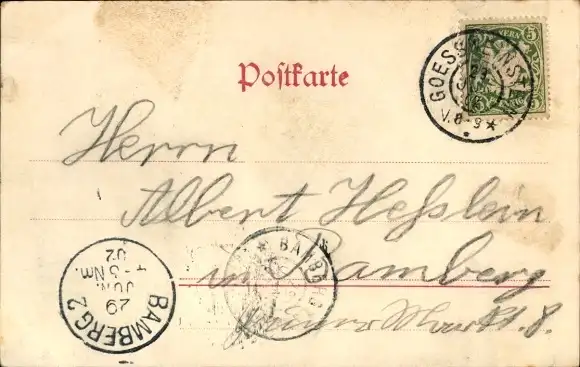 Postkarte
Herrn
Albert Hesslein
in Bamberg
Grüner Markt. 8.
GOESSWEINSTEIN
V. 8-9 *
5
BAMBERG 2
29
JUN.
4-5 Nm.
02
* BAMBERG